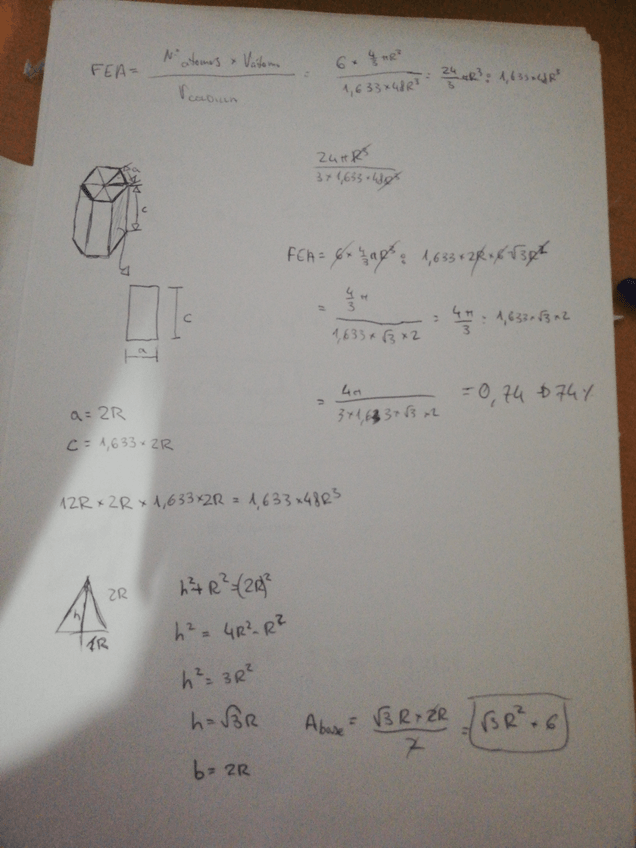 FEA = Nº átomos × Vátomo / Vcelda = 6 × 4/3 πR³ / 1,633×48R³ = 24/3 πR³ : 1,633×48R³
24πR³ / 3×1,633×48R³
a
c
FEA = 6 × 4/3 πR³ : 1,633×2R×6√3R²
= 4/3 π / 1,633×√3×2 = 4π/3 : 1,633×√3×2
c
a
= 4π / 3×1,633×√3×2 = 0,74 → 74%
a = 2R
c = 1,633×2R
12R×2R×1,633×2R = 1,633×48R³
2R
h
1R
h²+R²=(2R)²
h² = 4R²-R²
h² = 3R²
h = √3R
b = 2R
Abase = √3R×2R / 2 = √3R² · 6